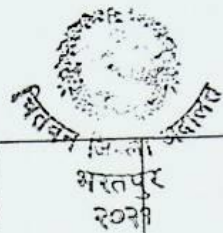 चितवन जिल्ला अदालत
भरतपुर
२०२१